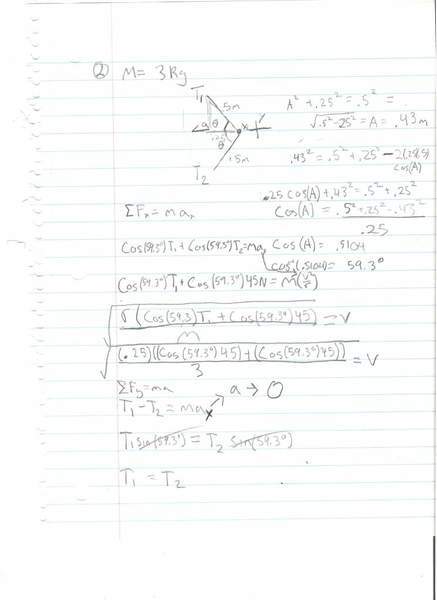 ② M= 3 Kg
T₁
.5m
a θ x
.25 θ
.5m
T₂
A² + .25² = .5² =
√.5² - .25² = A = .43m
.43² = .5² + .25² - 2(.25)(.5)
cos(A)
.25 cos(A) + .43² = .5² + .25²
Cos(A) = .5² + .25² - .43²
.25
ΣFₓ = maₓ
Cos(59.3°)T₁ + Cos(59.3°)T₂ = maₓ
Cos(A) = .5104
cos⁻¹(.5104) = 59.3°
Cos(59.3°)T₁ + Cos(59.3°)45N = m(v²/r)
√r (Cos(59.3)T₁ + Cos(59.3°)45) = v
m
√(.25)((Cos(59.3°)45) + (Cos(59.3°)45)) = v
3
ΣFy = ma
a → 0
T₁ - T₂ = ma
T₁ sin(59.3°) = T₂ sin(59.3°)
T₁ = T₂